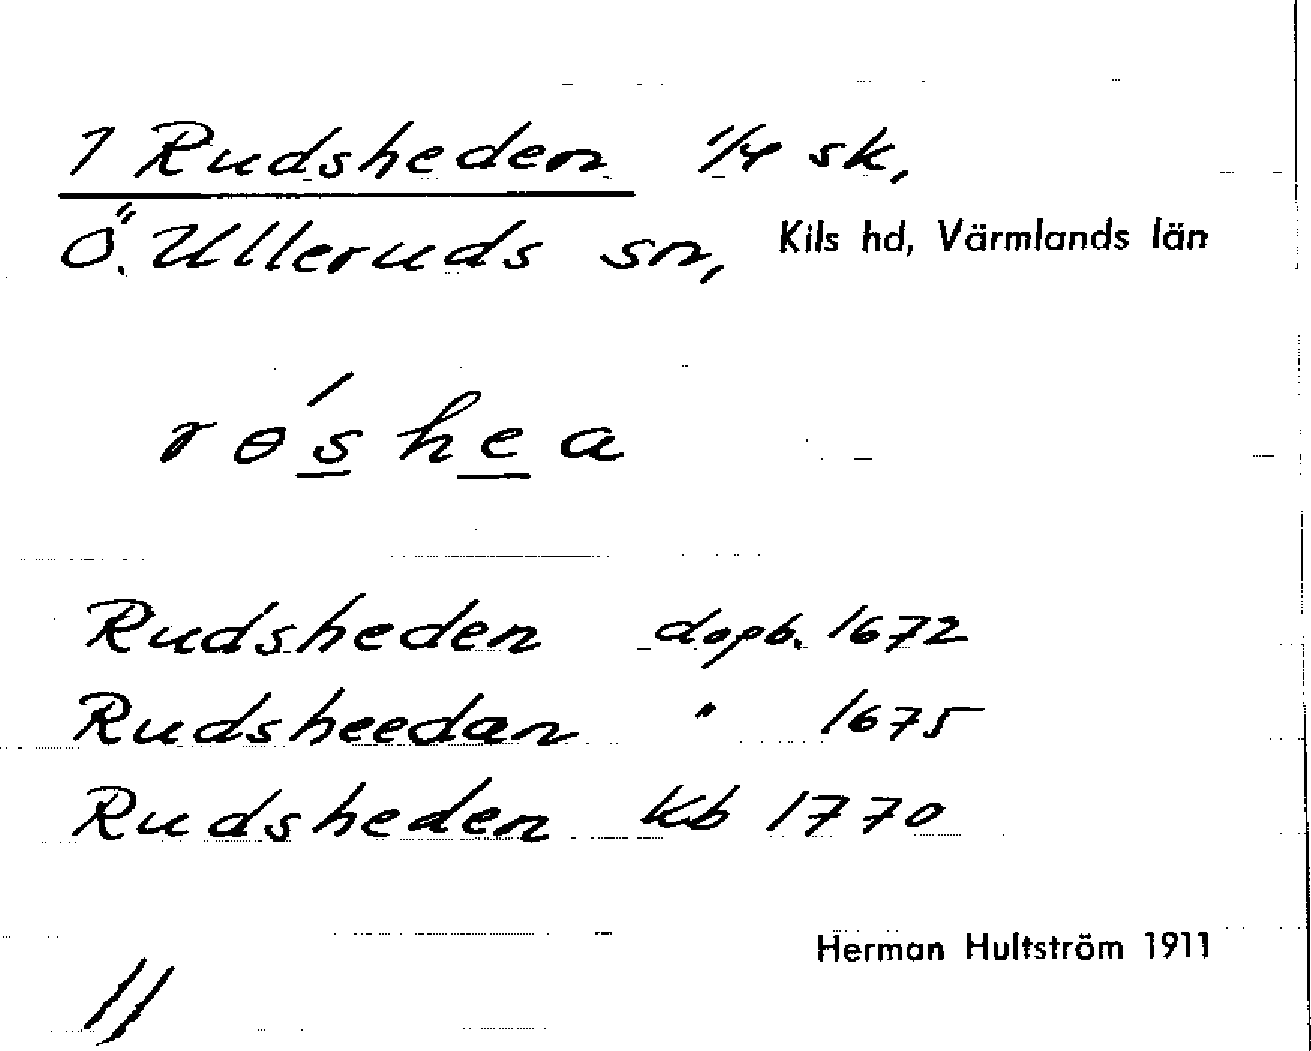 1 Rudsheden 1/4 sk,
Ö. Ulleruds sn, Kils hd, Värmlands län
rɵ́shea
Rudsheden dopb. 1672
Rudsheedan " 1675
Rudsheden Kb 1770
Herman Hultström 1911